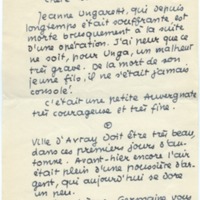 Jeanne Ungaretti, qui depuis
longtemps était souffrante, est
morte brusquement à la suite
d'une opération. J'ai peur que ce
ne soit, pour Unga, un malheur
très grave. De la mort de son
jeune fils, il ne s'était jamais
consolé.
C'était une petite Auvergnate
très courageuse et très fine.
Ville d'Avray doit être très beau,
dans ces premiers jours d'au-
tomne. Avant-hier encore l'air
était plein d'une poussière d'ar-
gent, qui aujourd'hui se dore
un peu.
Germaine vous